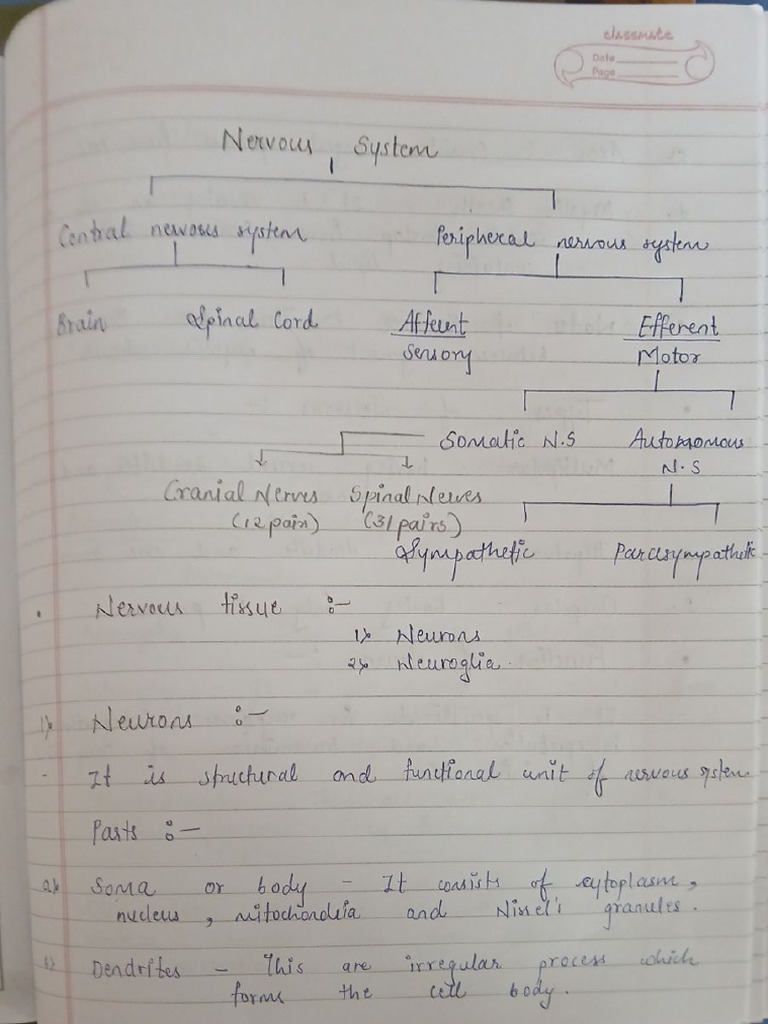 classmate
Date
Page
Nervous System
Central nervous system Peripheral nervous system
Brain Spinal Cord Afferent Efferent
Sensory Motor
Somatic N.S Autonomous
N.S
Cranial Nerves Spinal Nerves
(12 pair) (31 pairs)
Sympathetic Parasympathetic
• Nervous tissue :-
1> Neurons
2> Neuroglia.
1> Neurons :-
- It is structural and functional unit of nervous system
Parts :-
a> Soma or body - It consists of cytoplasm,
nucleus, mitochondria and Nissel's granules.
b> Dendrites - This are irregular process which
forms the cell body.